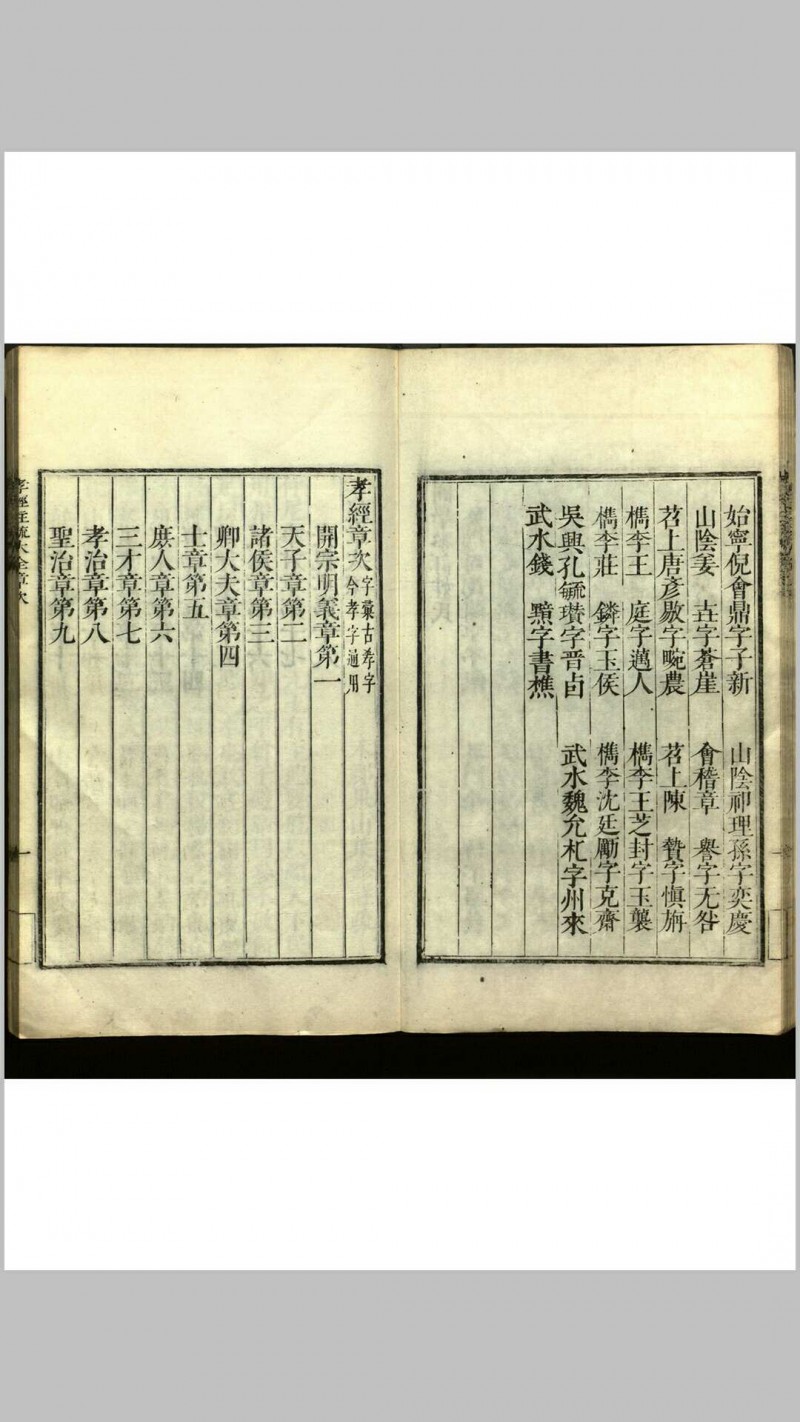 始寧倪會鼎字子新　山陰祁理孫字奕慶
山陰姜　垚字蒼崖　會稽章　譽字无咎
苕上唐彥　字畹農　苕上陳　贄字愼旃
檇李王　庭字邁人　檇李王芝封字玉襄
檇李莊　鏻字玉侯　檇李沈廷勵字克齋
吳興孔毓瓚字晋卣　武水魏允札字州來
武水錢　黯字書樵
孝經章次　字彙古孝字
今孝字通用
開宗明義章第一
天子章第二
諸侯章第三
卿大夫章第四
士章第五
庶人章第六
三才章第七
孝治章第八
聖治章第九
孝經注疏大全章次
一